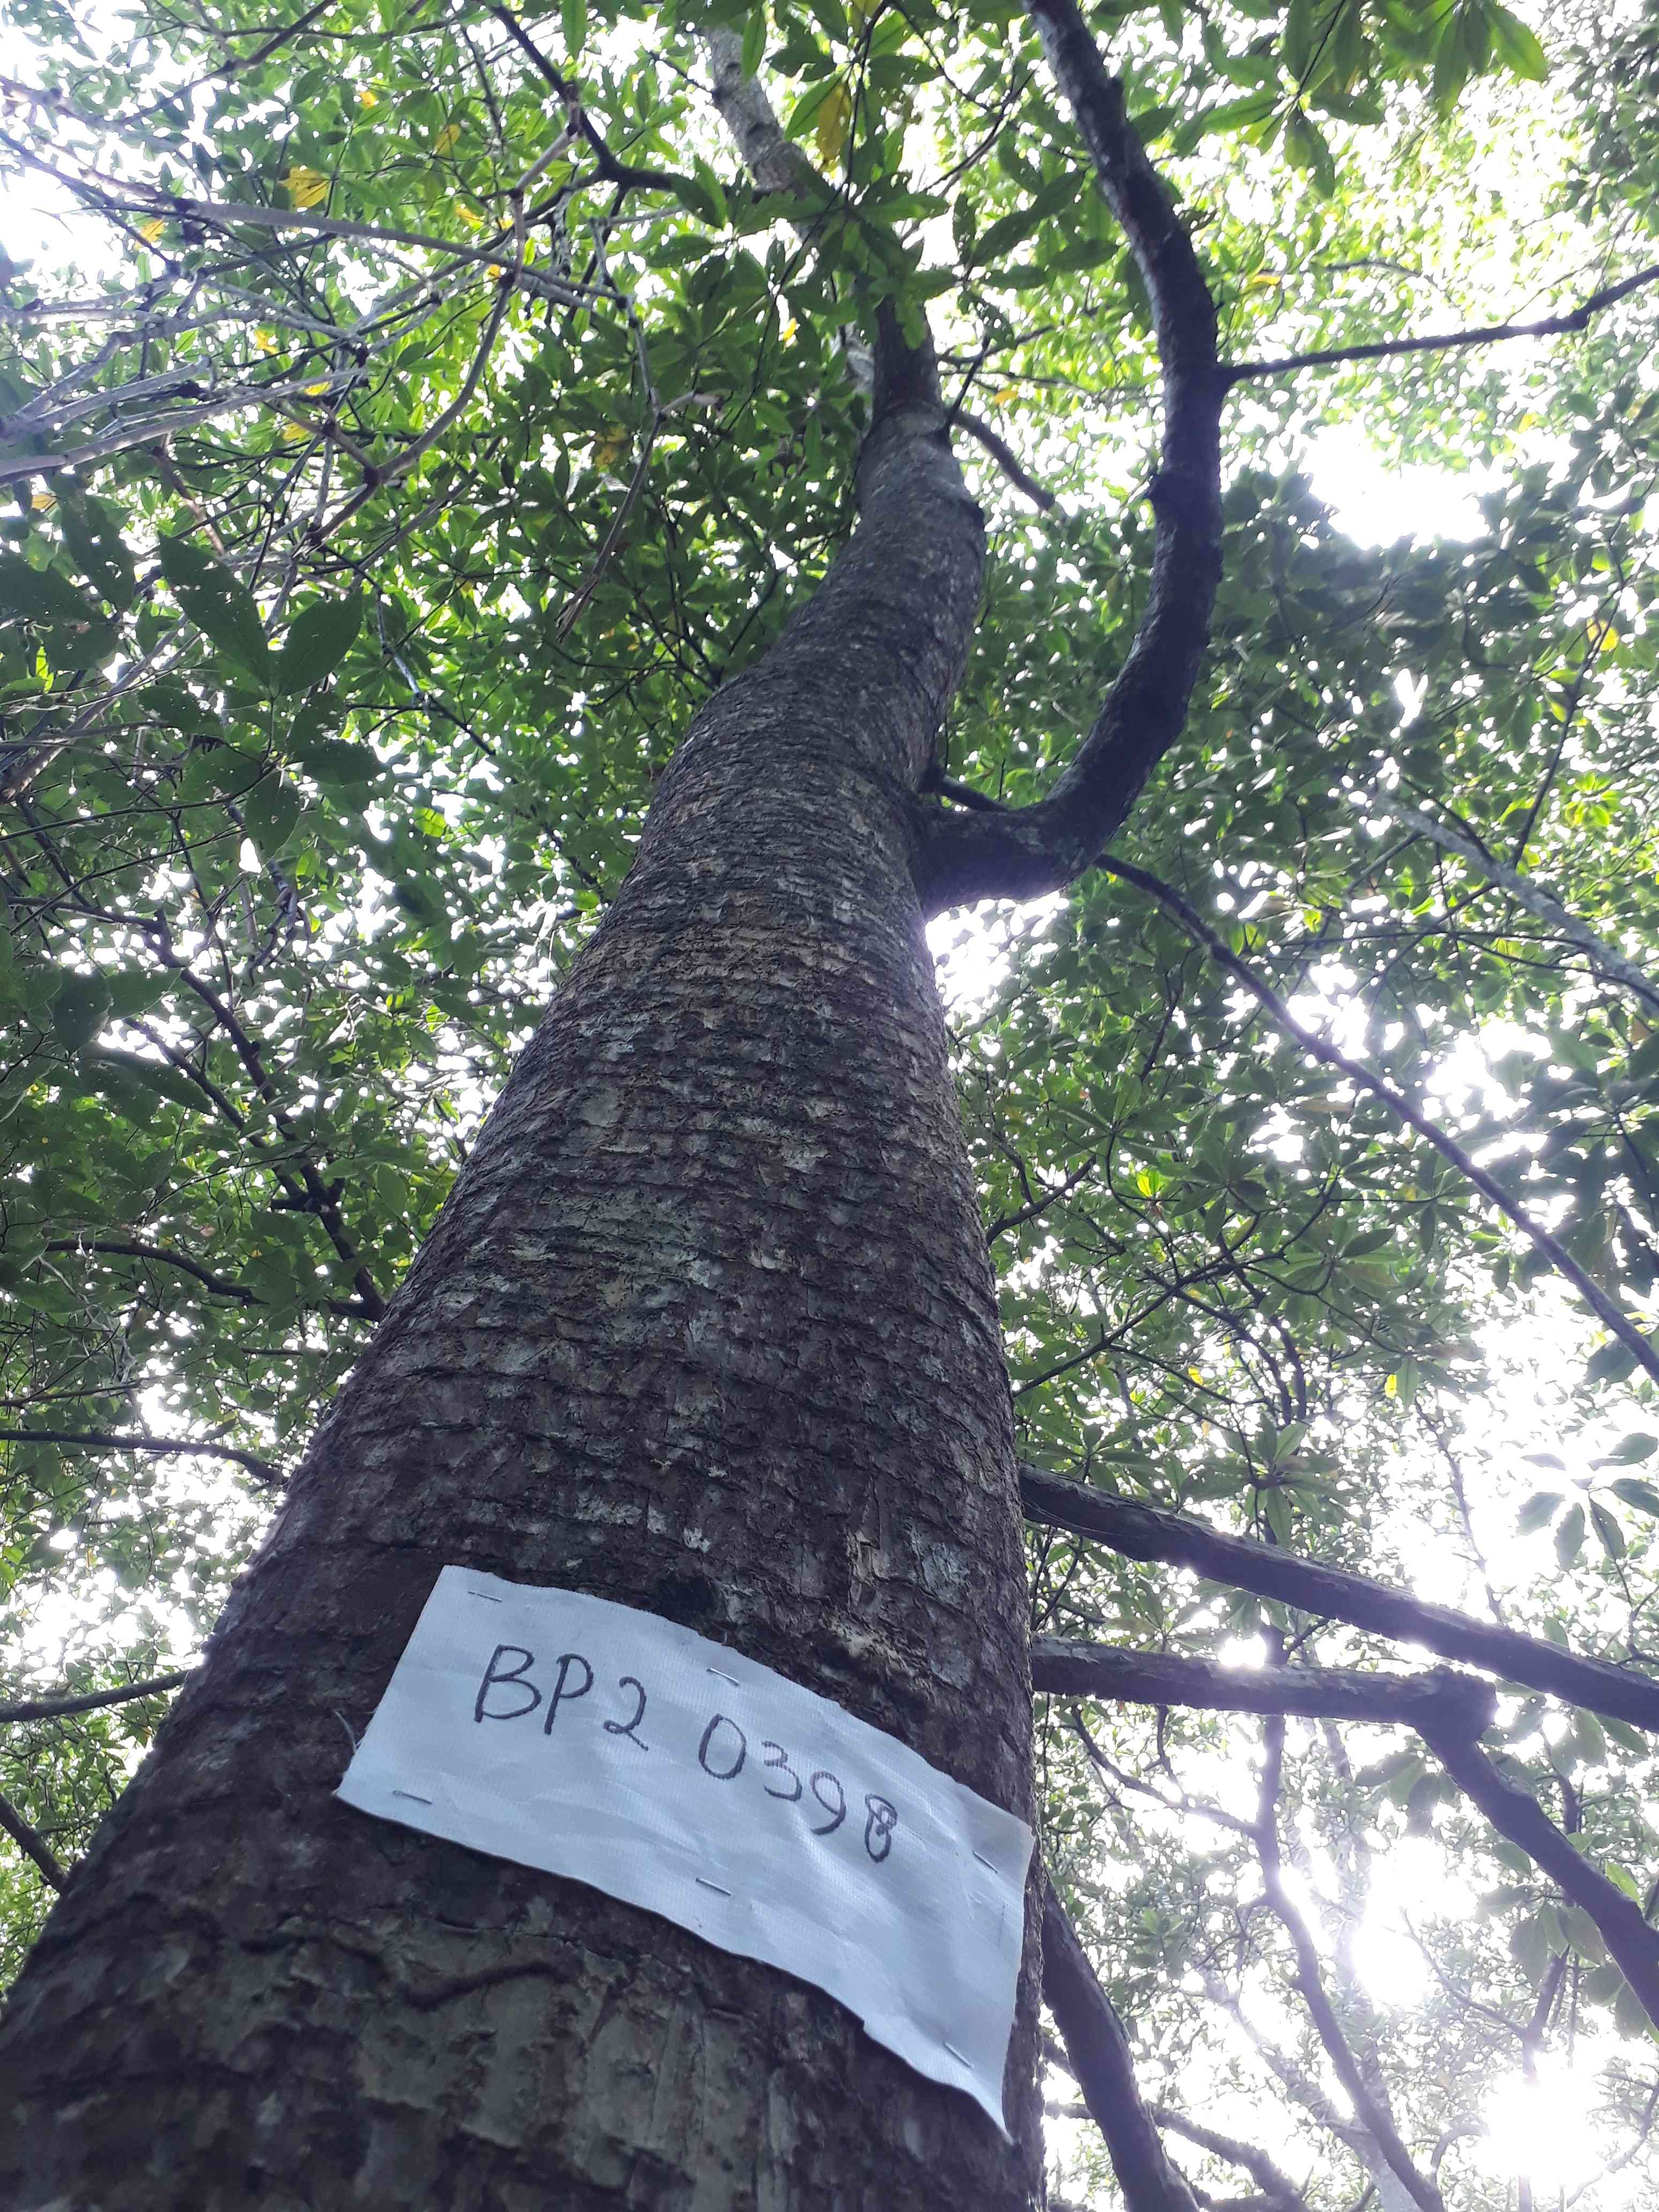 BP2 0398